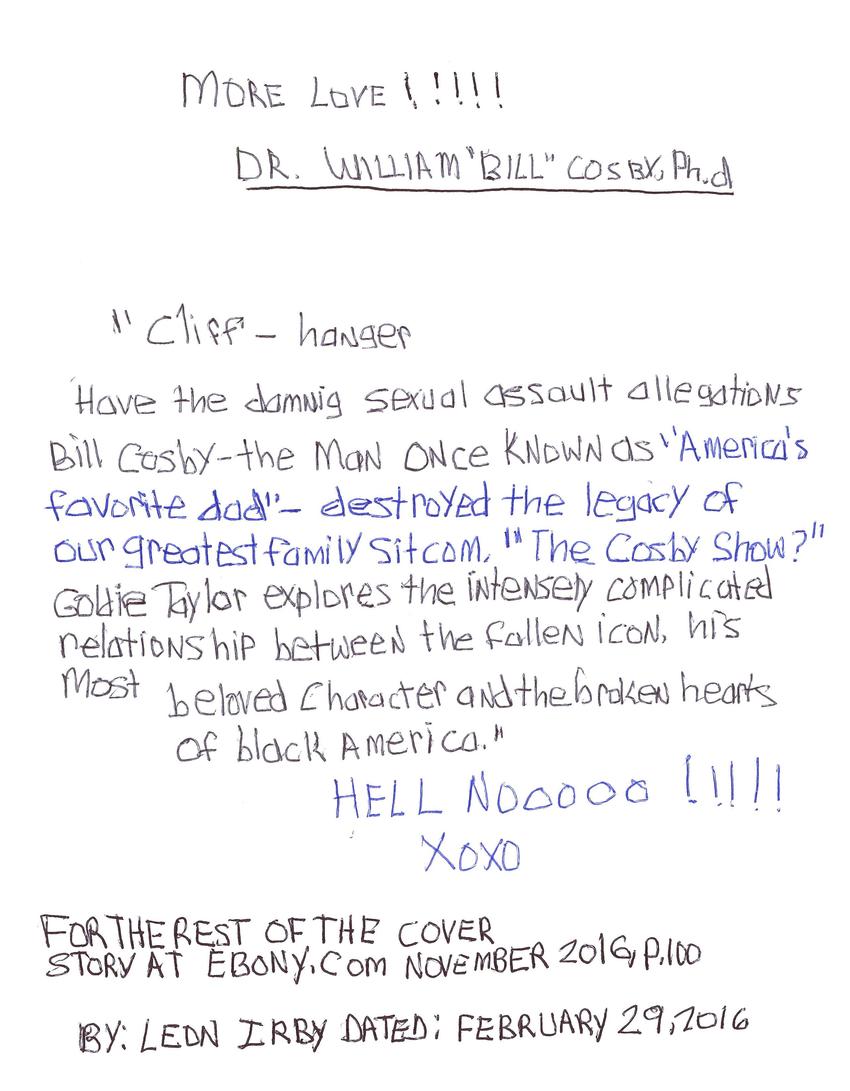 MORE LOVE !!!!!
DR. WILLIAM "BILL" COSBY, Ph.d
"Cliff - hanger
Have the damnig sexual assault allegations
Bill Cosby-the Man ONce KNOWN as "America's
favorite dad"- destroyed the legacy of
our greatest family sitcom, "The Cosby Show?"
Goldie Taylor explores the intensely complicated
relationship between the fallen icon, his
Most beloved Character and the broken hearts
of black America."
HELL NOOOOO !!!!!
XOXO
FOR THE REST OF THE COVER
STORY AT EBONY.COM NOVEMBER 2016, P.100
BY: LEON IRBY DATED: FEBRUARY 29, 2016